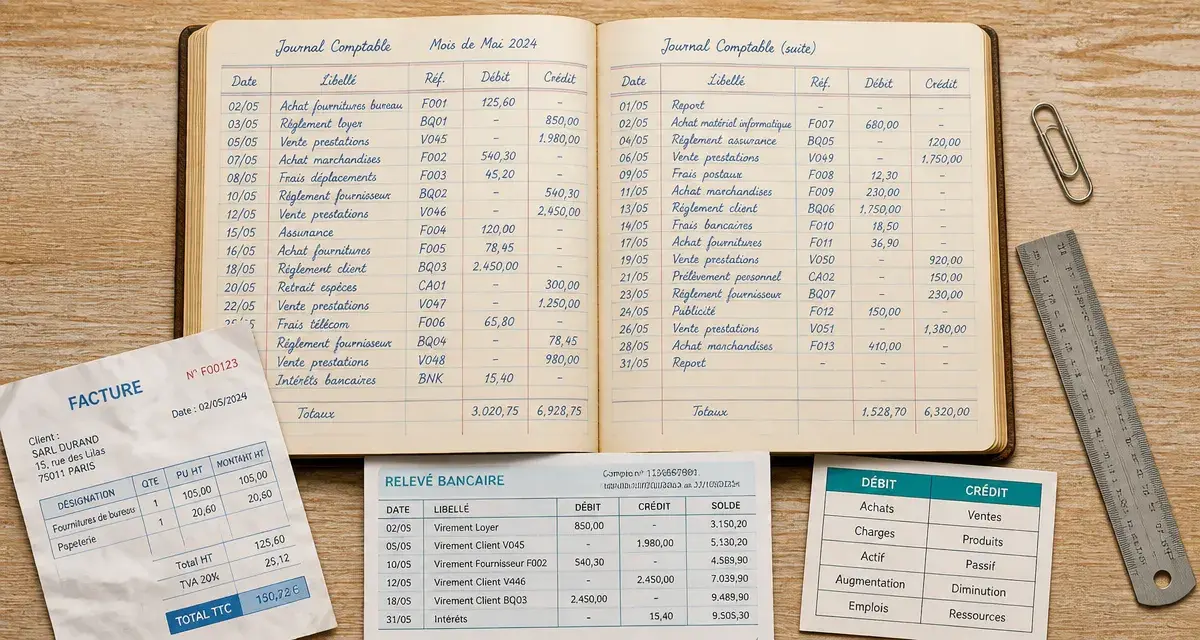 Journal Comptable Mois de Mai 2024
Date Libellé Réf. Débit Crédit
02/05 Achat fournitures bureau F001 125,60 -
03/05 Réglement loyer BQ01 - 850,00
05/05 Vente prestations V045 - 1.980,00
07/05 Achat marchandises F002 540,30 -
08/05 Frais déplacements F003 45,20 -
10/05 Réglement fournisseur BQ02 - 540,30
12/05 Vente prestations V046 - 2,450,00
15/05 Assurance F004 120,00 -
16/05 Achat fournitures F005 78,45 -
18/05 Réglement client BQ03 2.450,00 -
20/05 Retrait espèces CA01 - 300,00
22/05 Vente prestations V047 - 1.250,00
Frais télécom F006 65,80 -
Réglement fournisseur BQ04 - 78,45
Vente prestations V048 - 980,00
Intérêts bancaires BNK 15,40 -
Totaux 3.020,75 6,928,75
Journal Comptable (suite)
Date Libellé Réf. Débit Crédit
01/05 Report - - -
02/05 Achat matériel informatique F007 680,00 -
04/05 Réglement assurance BQ05 - 120,00
06/05 Vente prestations V049 - 1,750,00
09/05 Frais postaux F008 12,30 -
11/05 Achat marchandises F009 230,00 -
13/05 Réglement client BQ06 1.750,00 -
14/05 Frais bancaires F010 18,50 -
17/05 Achat fournitures F011 36,90 -
19/05 Vente prestations V050 - 920,00
21/05 Prélèvement personnel CA02 - 150,00
23/05 Réglement fournisseur BQ07 - 230,00
24/05 Publicité F012 150,00 -
26/05 Vente prestations V051 - 1,380,00
28/05 Achat marchandises F013 410,00 -
31/05 Report - - -
-
Totaux 1,528,70 6,320,00
FACTURE N° F00123
Date : 02/05/2024
Client :
SARL DURAND
15, rue des Lilas
75011 PARIS
DÉSIGNATION QTE PU HT MONTANT HT
Fournitures de bureau 1 105,00 105,00
Papeterie 1 20,60 20,60
Total HT 125,60
TVA 20% 25,12
TOTAL TTC
RELEVÉ BANCAIRE
DATE LIBELLÉ DÉBIT CRÉDIT SOLDE
02/05 Virement Loyer 850,00 - 3.150,20
05/05 Virement Client V045 - 1.980,00 5,130,20
10/05 Virement Fournisseur F002 540,30 - 4.589,90
12/05 Virement Client V446 - 2,450,00 7.039,90
18/05 Virement Client BQ03 2,450,00 - 9.489,90
31/05 Intérêts - 15,40 9.505,30
DÉBIT CRÉDIT
Achats Ventes
Charges Produits
Actif Passif
Augmentation Diminution
Emplois Ressources